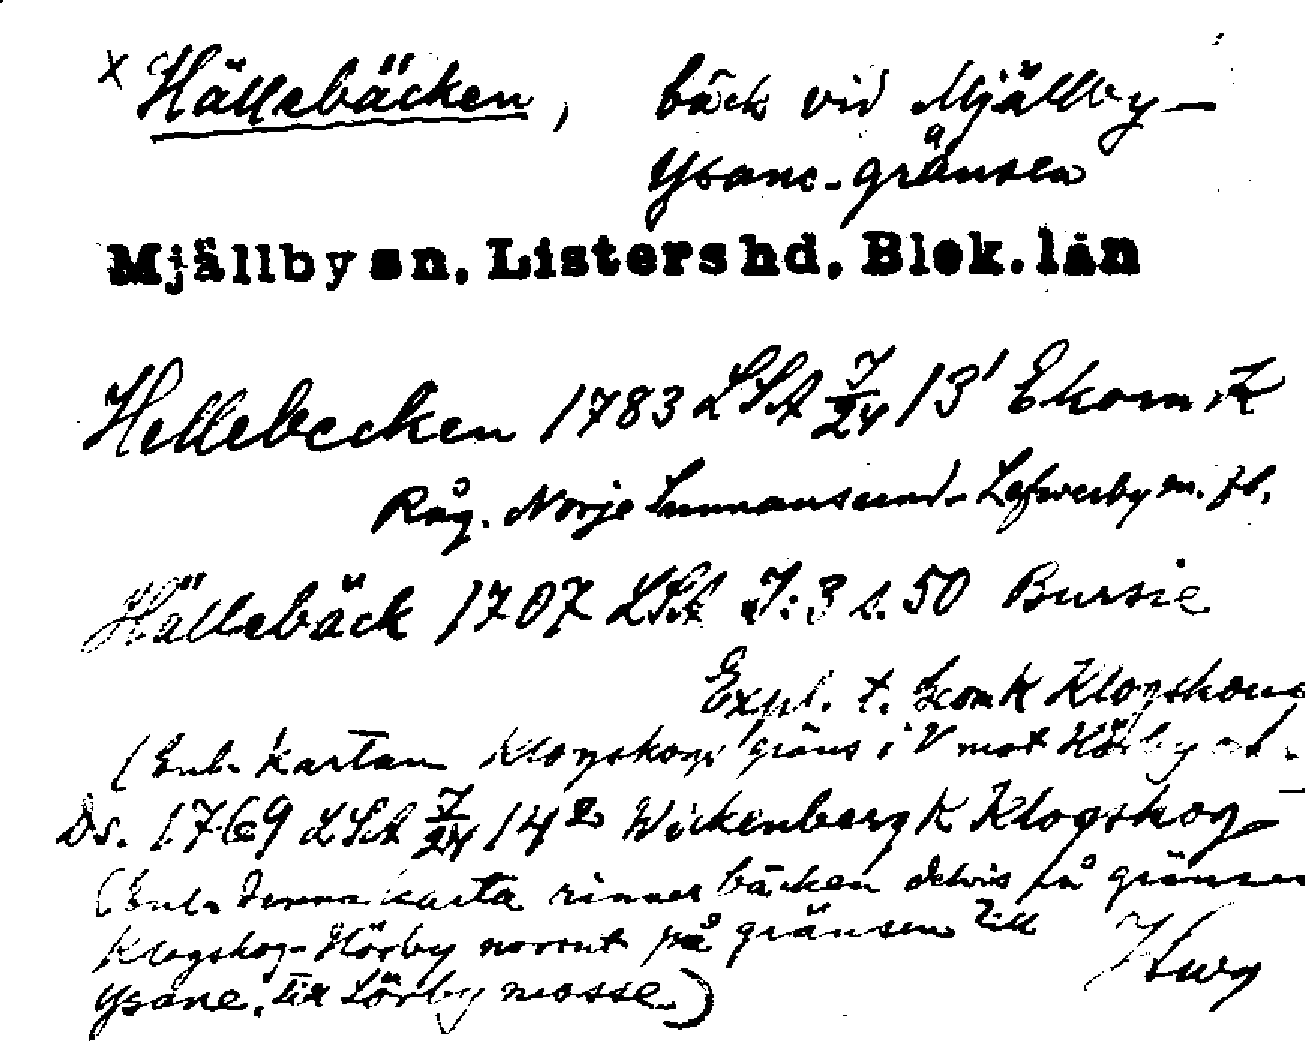 x Hällebäcken, bäck vid Mjällby–
Ysane-gränsen
Mjällby sn. Listers hd. Blek. län
Hellebecken 1783 LSA J/24 13¹ Ekom K
Råg. Norje Sunnansund- Lefwerby m. fl.
Hällebäck 1707 LSA J:3 s. 50 Bursie
Expl. t. Geom K Klogskoug
(Enl. kartan Klogskogs gräns i V mot Hörby
Ds. 1769 LSA J/24 14² Wickenberg K Klogskog
(Enl. denna karta rinner bäcken delvis på gränsen
Klogskog-Hörby norrut på gränsen till
Ysane, till Lörby mosse)